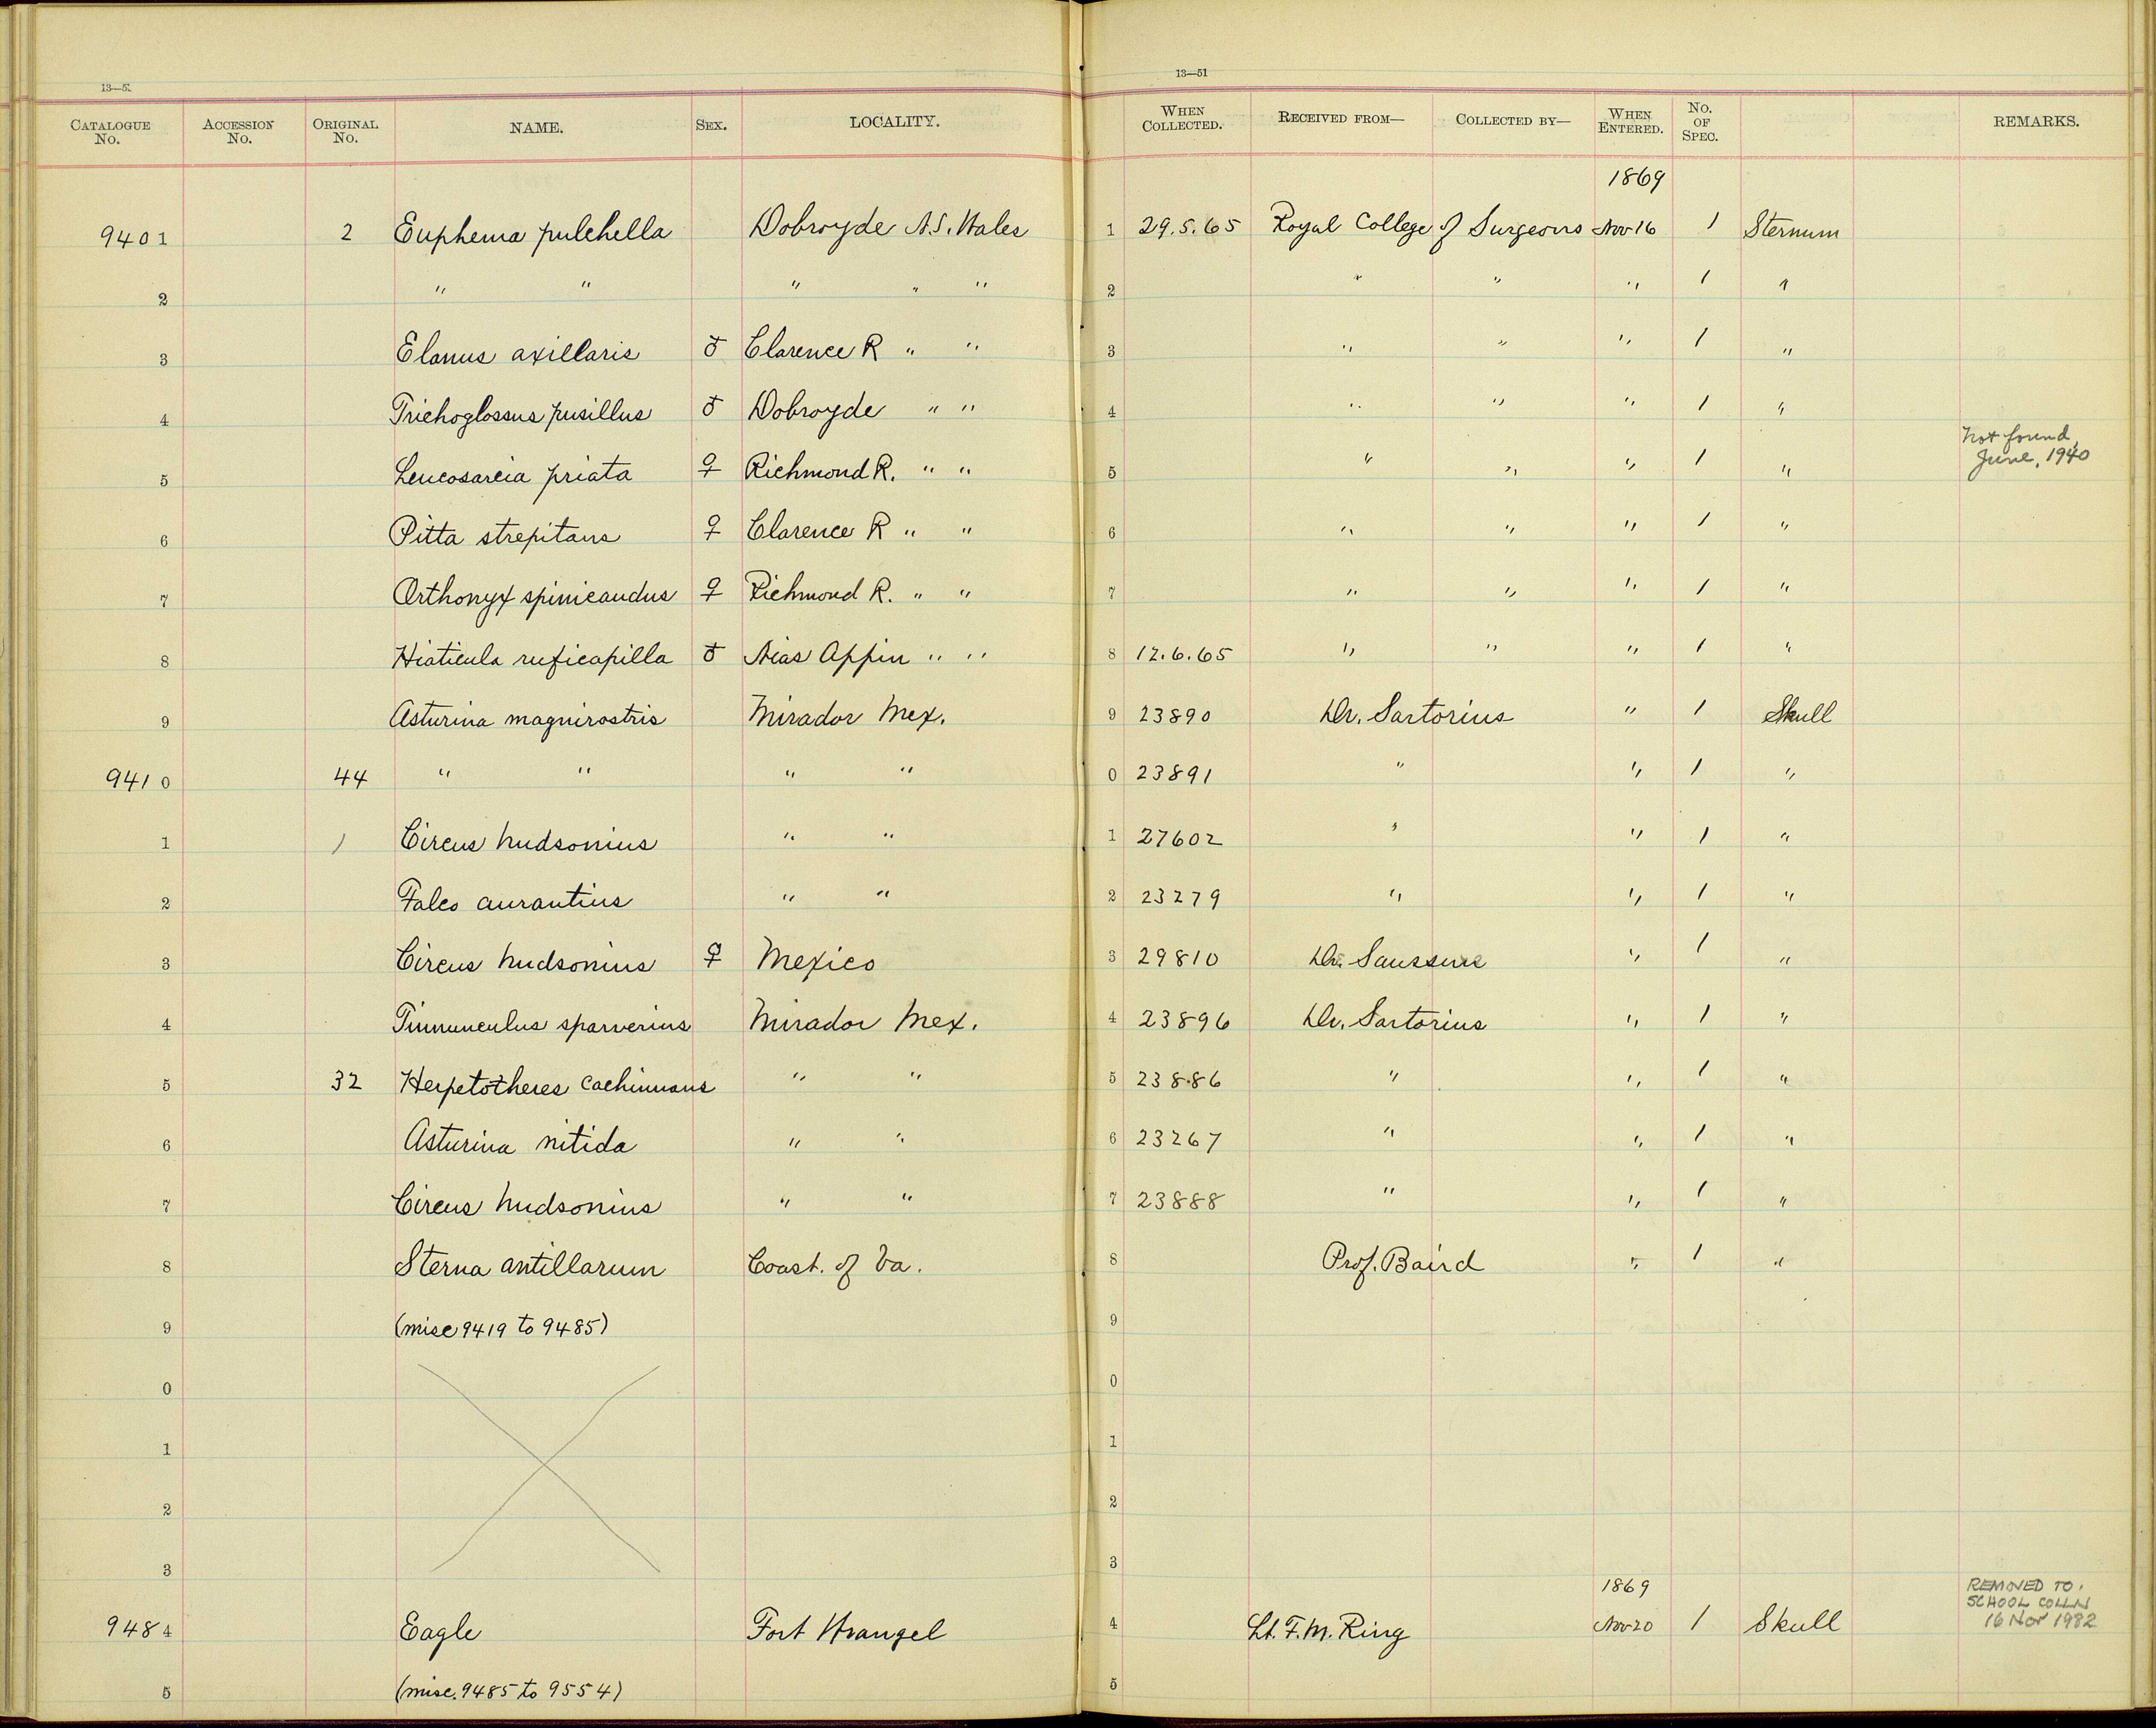 13—5
13—51
CATALOGUE No. ACCESSION No. ORIGINAL No. NAME. SEX. LOCALITY. WHEN COLLECTED. RECEIVED FROM— COLLECTED BY— WHEN ENTERED. No. OF SPEC. REMARKS.
1869
9401 2 Euphema pulchella Dobroyde N.S. Wales 1 29.5.65 Royal College of Surgeons Nov 16 1 Sternum
2 " " " " " 2 " " " 1 "
3 Elanus axillaris ♂ Clarence R " " 3 " " " 1 "
4 Trichoglossus pusillus ♂ Dobroyde " " 4 " " " 1 "
5 Leucosarcia priata ♀ Richmond R. " " 5 " " " 1 " Not found, June, 1940
6 Pitta strepitans ♀ Clarence R " " 6 " " " 1 "
7 Orthonyx spinicaudus ♀ Richmond R. " " 7 " " " 1 "
8 Hiaticula ruficapilla ♂ Nias Appin " " 8 12.6.65 " " " 1 "
9 Asturina magnirostris Mirador Mex. 9 23890 Dr. Sartorius " 1 Skull
9410 44 " " " " 0 23891 " " 1 "
1 ) Circus hudsonius " " 1 27602 " " 1 "
2 Falco aurantius " " 2 23279 " " 1 "
3 Circus hudsonius ♀ Mexico 3 29810 Dr. Saussure " 1 "
4 Tinnunculus sparverius Mirador Mex. 4 23896 Dr. Sartorius " 1 "
5 32 Herpetotheres cachinnans " " 5 23886 " " 1 "
6 Asturina nitida " " 6 23267 " " 1 "
7 Circus hudsonius " " 7 23888 " " 1 "
8 Sterna antillarum Coast. of Va. 8 Prof. Baird " 1 "
9 (misc 9419 to 9485) 9
0 0
1 1
2 2
3 3
1869
9484 Eagle Fort Wrangel 4 Lt. F.M. Ring Nov 20 1 Skull REMOVED TO SCHOOL COLLN 16 Nov 1982
5 (misc. 9485 to 9554) 5